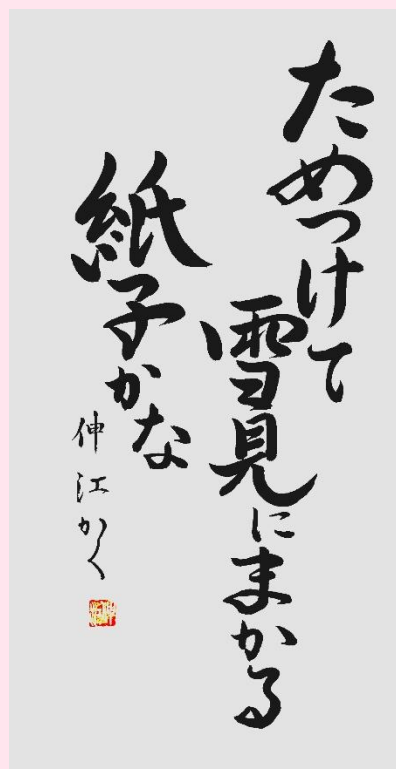 ためつけて
雪見にまかる
紙子かな
伸江かく